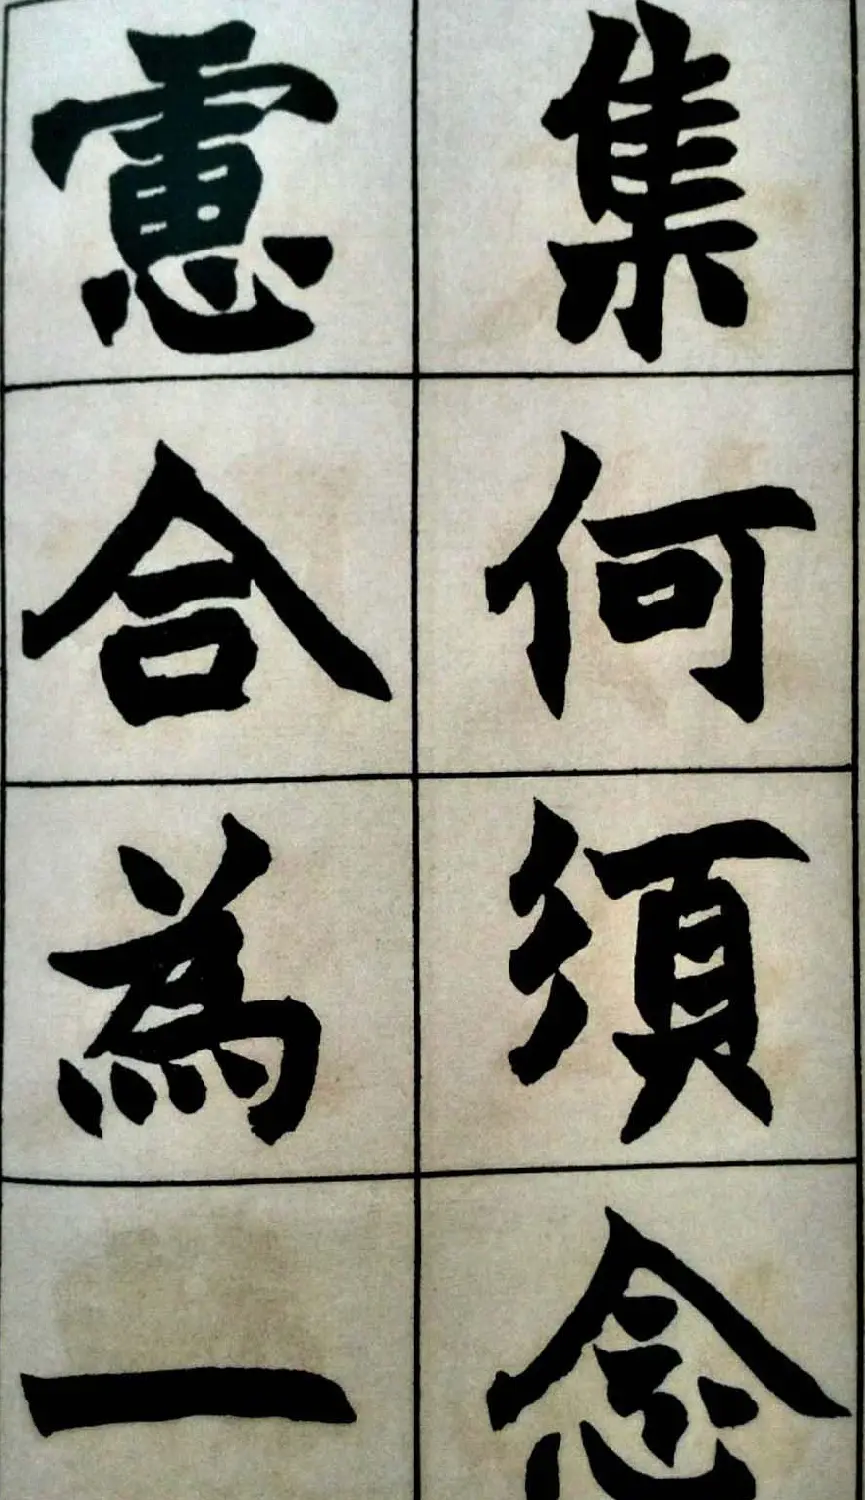 集何須念
慮合為一